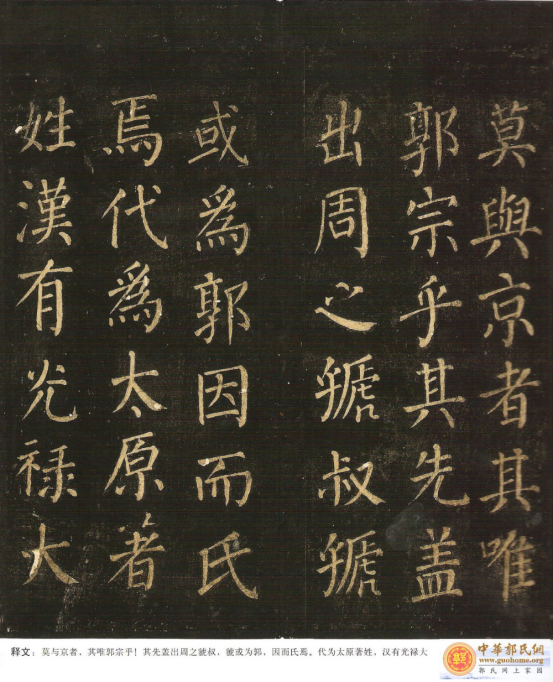 莫與京者其唯
郭宗乎其先盖
出周之虢叔虢
或爲郭因而氏
焉代爲太原著
姓漢有光禄大
释文：莫与京者，其唯郭宗乎！其先盖出周之虢叔，虢或为郭，因而氏焉。代为太原著姓，汉有光禄大
中華郭氏網
www.guohome.org
郭氏网上家园